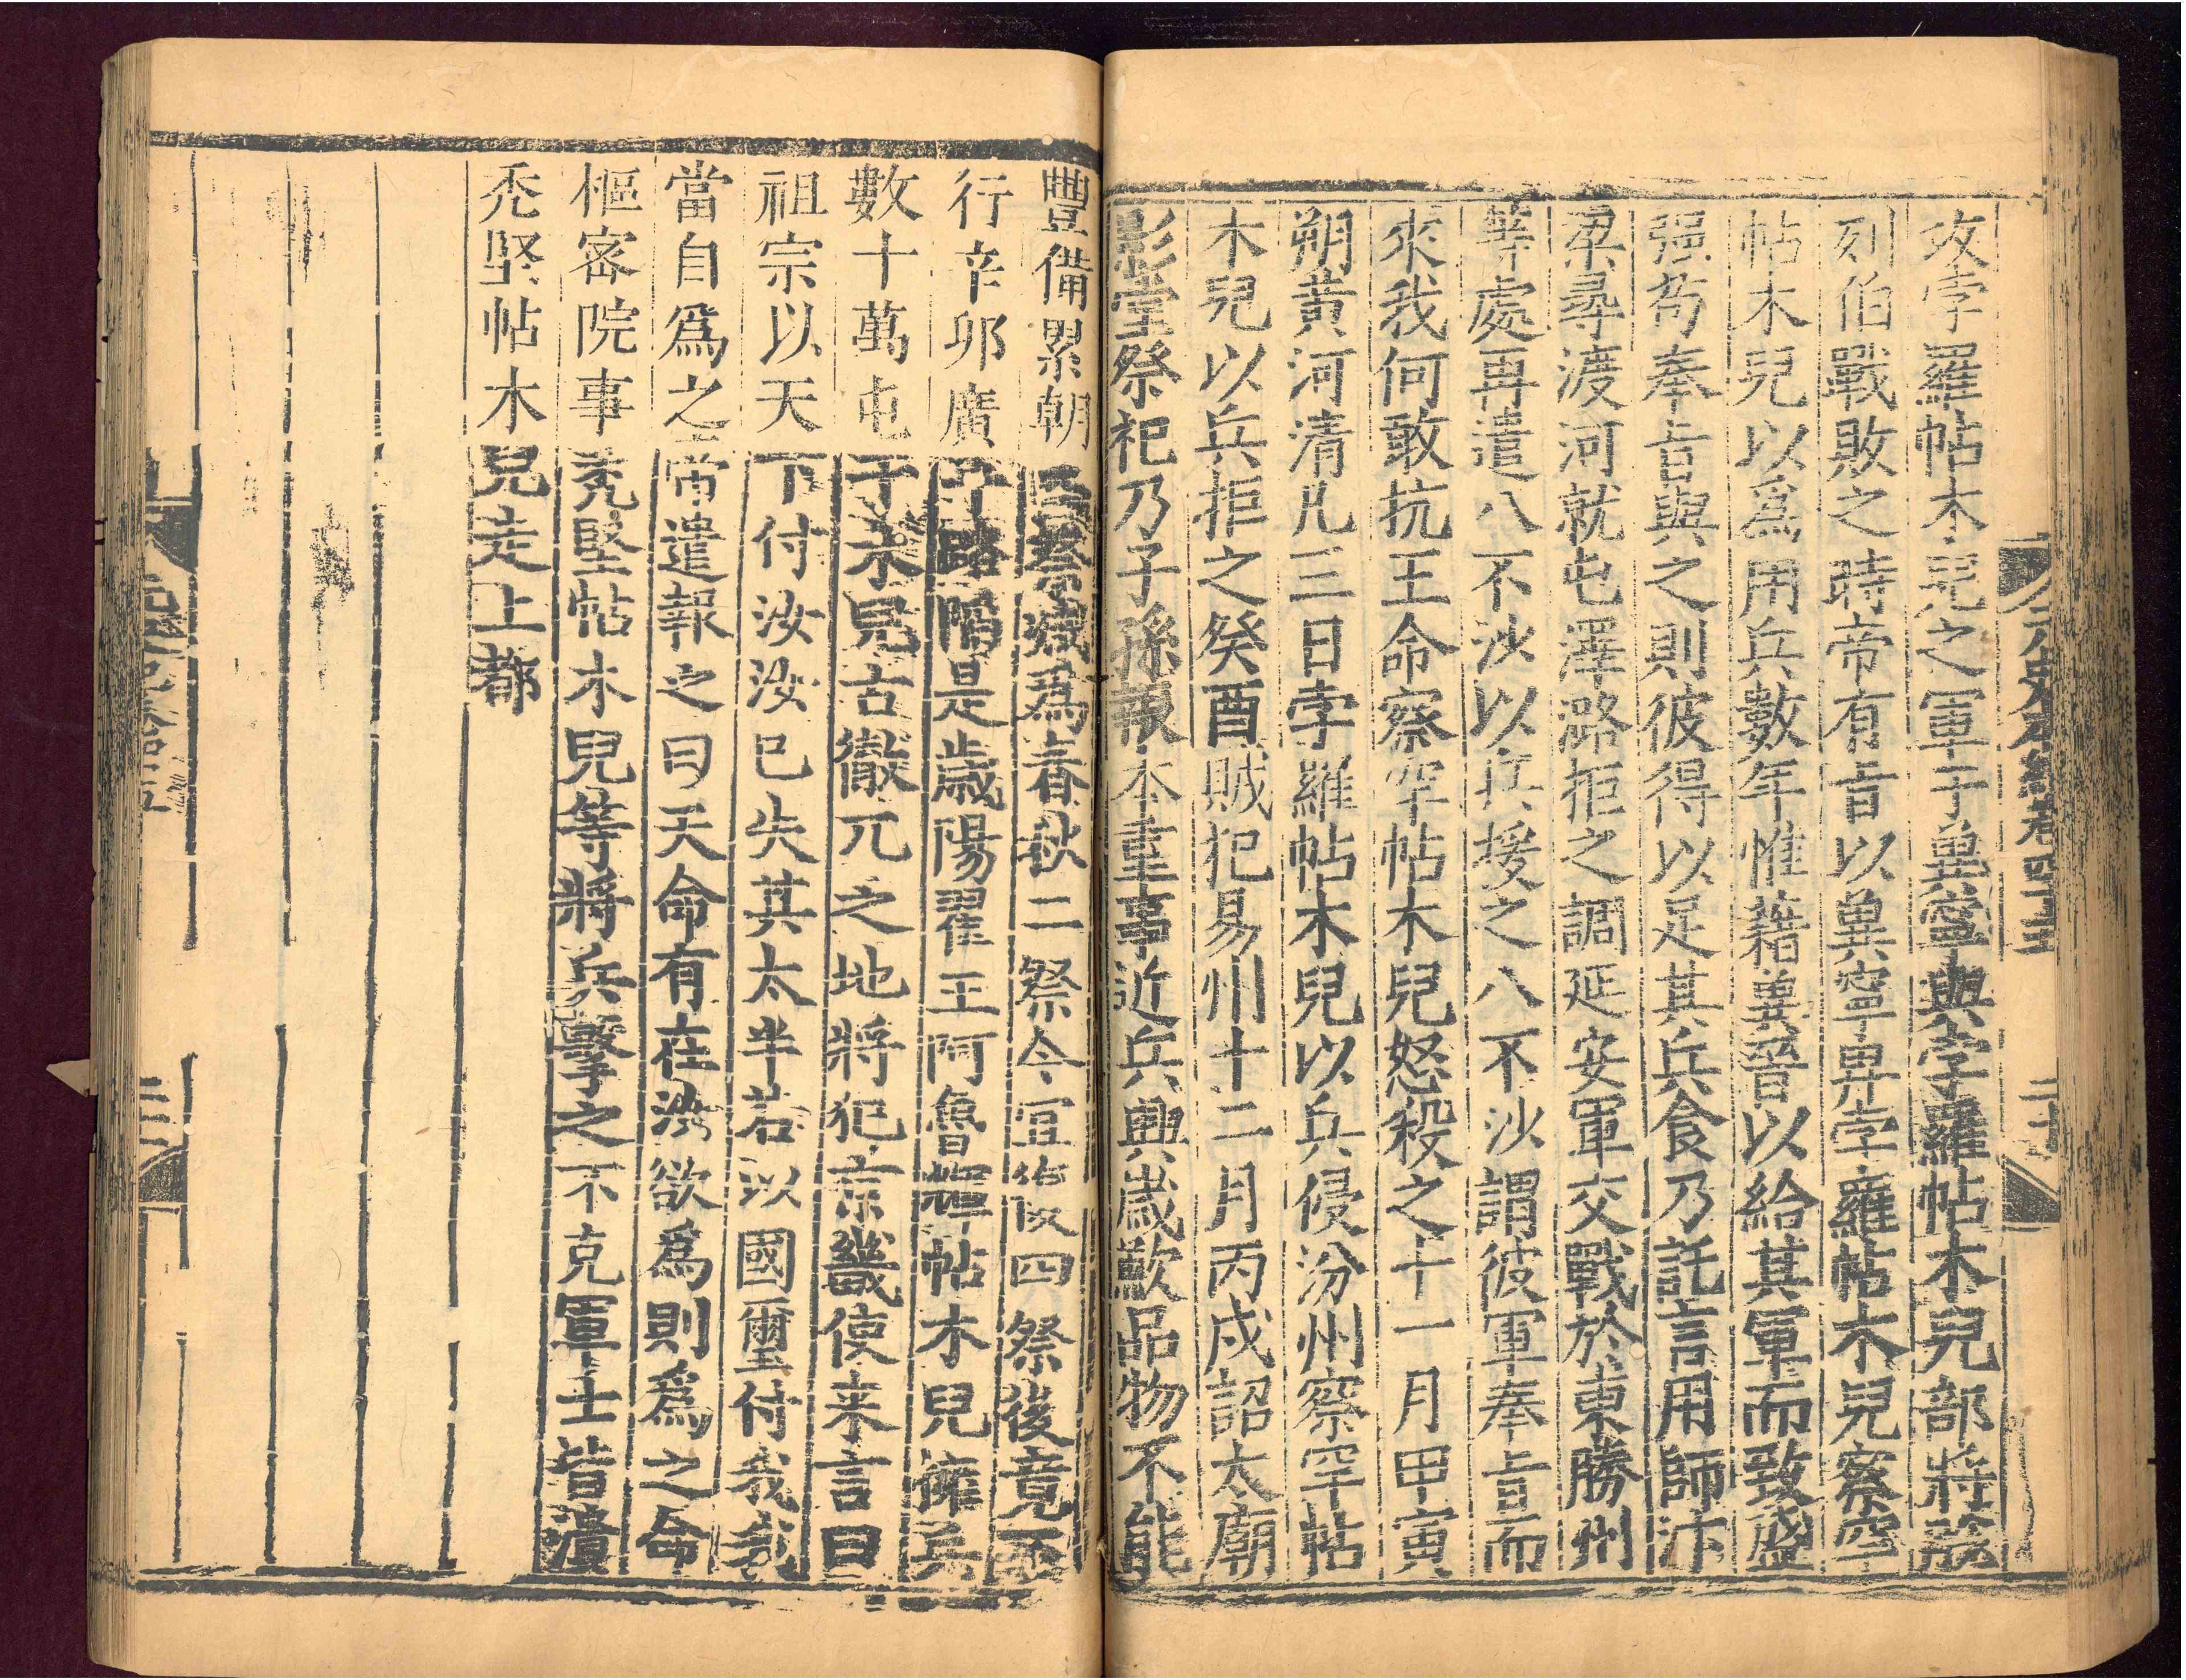 攻孛羅帖木兒之軍于兾寧與孛羅帖木兒部將脫
列伯戰敗之時帝有旨以兾寧畀孛羅帖木兒察罕
帖木兒以爲用兵數年惟藉兾晉以給其軍而致盛
强苟奉旨與之則彼得以足其兵食乃託言用師汴
梁尋渡河就屯澤潞拒之調延安軍交戰於東勝州
等處再遣八不沙以兵援之八不沙謂彼軍奉旨而
來我何敢抗王命察罕帖木兒怒殺之十一月甲寅
朔黃河清凡三日孛羅帖木兒以兵侵汾州察罕帖
木兒以兵拒之癸酉賊犯易州十二月丙戌詔太廟
影堂祭祀乃子孫報本重事近兵興歲歉品物不能
豐備累朝四祭減爲春秋二祭今宜復四祭後竟不
行辛卯廣平路陷是歲陽翟王阿魯輝帖木兒擁兵
數十萬屯于木兒古徹兀之地將犯京畿使来言曰
祖宗以天下付汝汝已失其太半若以國璽付我我
當自爲之帝遣報之曰天命有在汝欲爲則爲之命
樞密院事禿堅帖木兒等將兵擊之不克軍士皆潰
禿堅帖木兒走上都